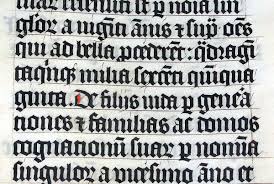 recensiti sūt p noīa sin
gulor a uigīti ānis ⁊ sup̄ om̄s
qui ad bella p̄cederēt: q̄dragī
taq̄nq; milia sexcēti quīqua
ginta. De filiis iuda p gen̄ca
tiones ⁊ familias ac domos
cognationū suar p nomīa
singulor a uicesimo āno et